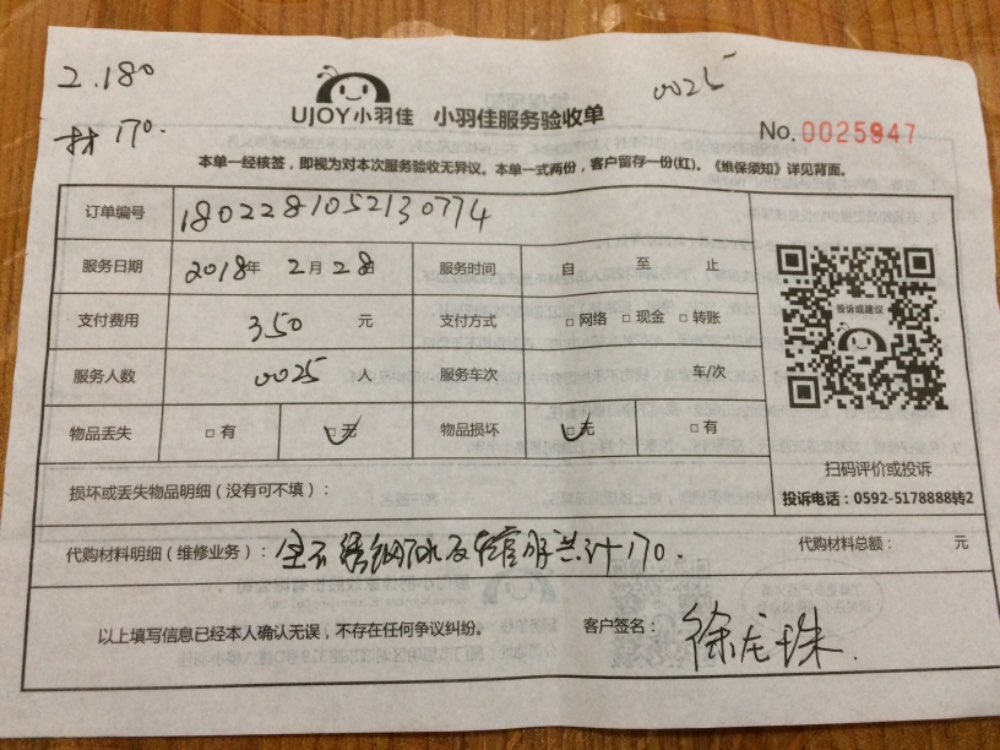 2.180
0025
材 170.
UJOY小羽佳 小羽佳服务验收单
No.0025947
本单一经核签，即视为对本次服务验收无异议。本单一式两份，客户留存一份(红)。《维保须知》详见背面。
订单编号 1802281052130774
服务日期 2018年 2月 28日 服务时间 自 至 止
支付费用 350 元 支付方式 □网络 □现金 □转账
投诉或建议
服务人数 0025 人 服务车次 车/次
物品丢失 □有 □无 物品损坏 □无 □有
扫码评价或投诉
损坏或丢失物品明细（没有可不填）：
投诉电话：0592-5178888转2
代购材料明细（维修业务）：全不锈钢下水及 共计170.
代购材料总额： 元
以上填写信息已经本人确认无误，不存在任何争议纠纷。 客户签名：徐龙珠.